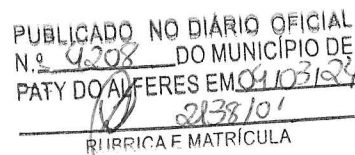 PUBLICADO NO DIÁRIO OFICIAL
N.º 4208 DO MUNICÍPIO DE
PATY DO ALFERES EM 04/03/24
2138/01
RUBRICA E MATRÍCULA